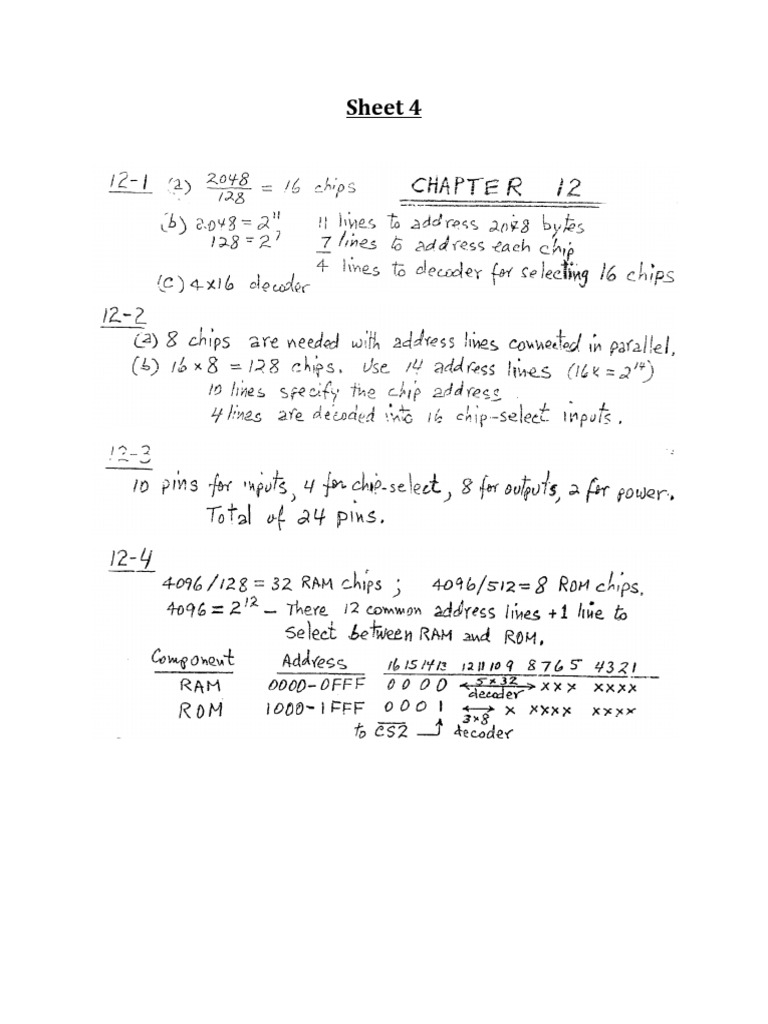 Sheet 4
12-1 (a) 2048/128 = 16 chips CHAPTER 12
(b) 2048 = 2^11 11 lines to address 2048 bytes
128 = 2^7 7 lines to address each chip
4 lines to decoder for selecting 16 chips
(c) 4×16 decoder
12-2
(a) 8 chips are needed with address lines connected in parallel.
(b) 16 × 8 = 128 chips. Use 14 address lines (16K = 2^14)
10 lines specify the chip address
4 lines are decoded into 16 chip-select inputs.
12-3
10 pins for inputs, 4 for chip-select, 8 for outputs, 2 for power.
Total of 24 pins.
12-4
4096/128 = 32 RAM chips ; 4096/512 = 8 ROM chips.
4096 = 2^12 – There 12 common address lines +1 line to
select between RAM and ROM.
Component Address 16 15 14 13 12 11 10 9 8 7 6 5 4 3 2 1
RAM 0000-0FFF 0 0 0 0 5×32 decoder xxx xxxx
ROM 1000-1FFF 0 0 0 1 3×8 x xxxx xxxx
to CS2 decoder